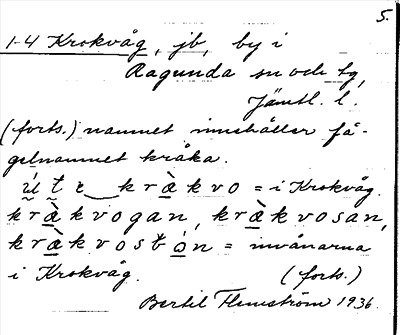 5.
1-4 Krokvåg, jb, by i
Ragunda sn och tg,
Jämtl. l.
(forts.) namnet innehåller få-
gelnamnet kråka.
út e krækvo = i Krokvåg.
krækvogan, krækvosan,
krækvostón = invånarna
i Krokvåg. (forts.)
Bertil Flemström 1936.